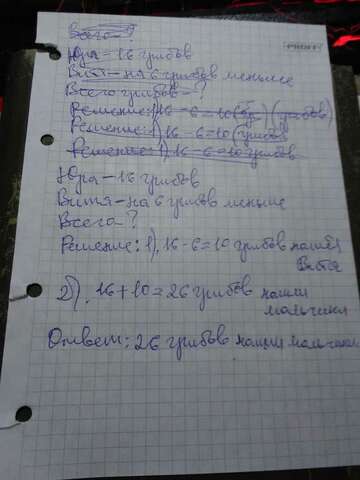 Всего-?
PROFF
Юра-16 грибов
Витя-на 6 грибов меньше
Всего грибов-?
Решение: 1) 16-6=10(гр)(грибов)
Решение: 1) 16-6=10(грибов
Решение: 1) 16-6=10 грибов
Юра-16 грибов
Витя-на 6 грибов меньше
Всего-?
Решение: 1). 16-6=10 грибов нашёл
Витя
2). 16+10=26 грибов нашли
мальчики
Ответ: 26 грибов нашли мальчики